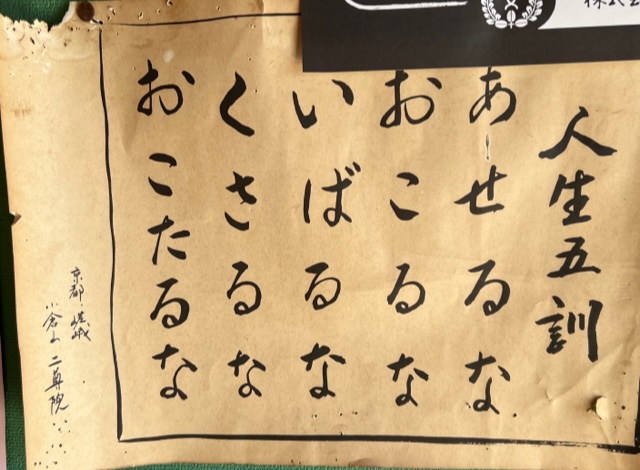 人生五訓
あせるな
おこるな
いばるな
くさるな
おこたるな
京都 嵯峨
小倉山 二尊院
株式会